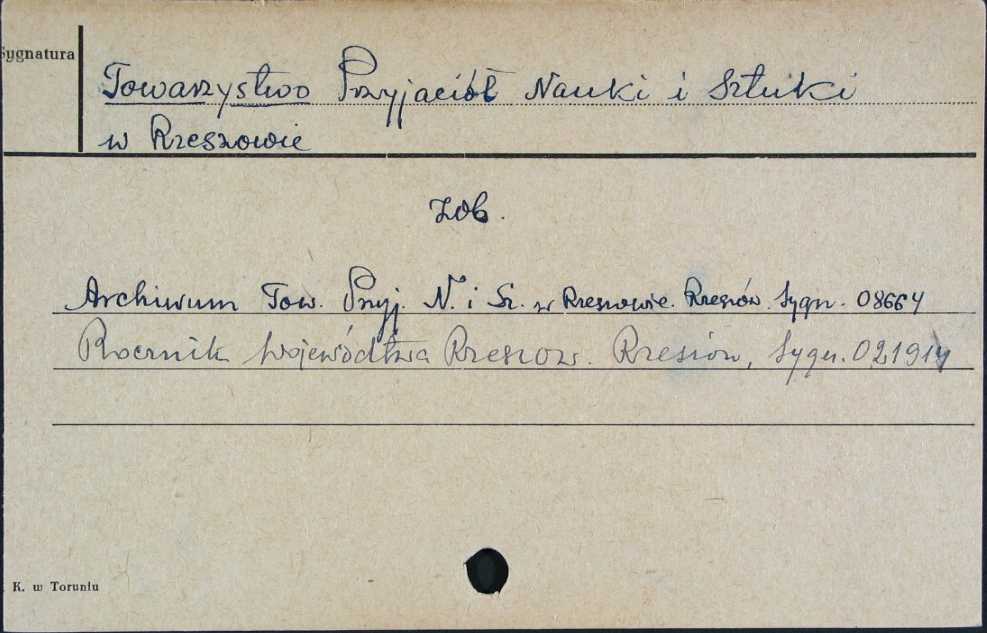 Sygnatura
Towarzystwo Przyjaciół Nauki i Sztuki
w Rzeszowie
zob.
Archiwum Tow. Przyj. N. i Sz. w Rzeszowie. Rzeszów. Sygn. 08664
Rocznik Województwa Rzeszow. Rzeszów, Sygn. 021914
K. w Toruniu